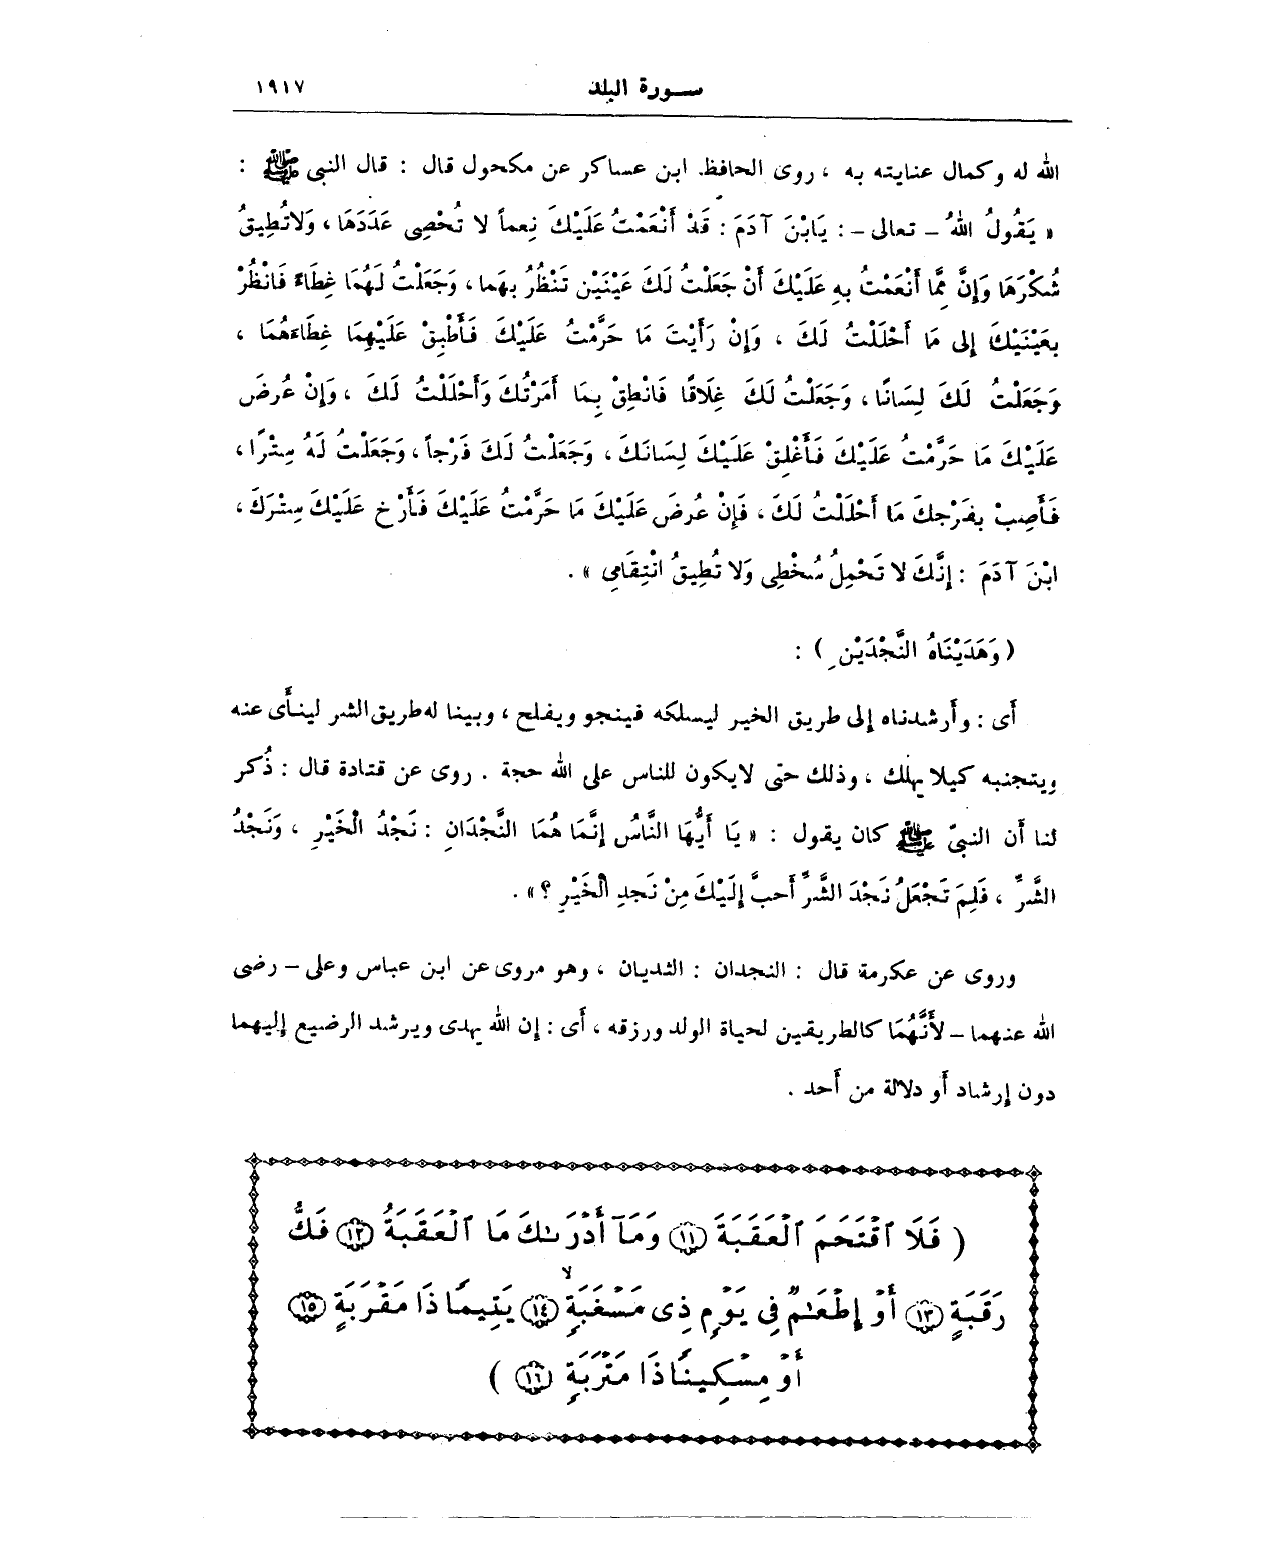 سورة البلد ١٩١٧
الله له وكمال عنايته به ، روى الحافظ ابن عساكر عن مكحول قال : قال النبى ﷺ :
« يَقُولُ اللهُ – تعالى – : يَابْنَ آدَمَ : قَدْ أَنْعَمْتُ عَلَيْكَ نِعماً لا تُحْصِى عَدَدَهَا ، وَلاتُطِيقُ
شُكْرَهَا وَإِنَّ مِمَّا أَنْعَمْتُ بِهِ عَلَيْكَ أَنْ جَعَلْتُ لَكَ عَيْنَيْنِ تَنْظُرُ بِهَما ، وَجَعَلْتُ لَهُمَا غِطَاءً فَانْظُرْ
بِعَيْنَيْكَ إِلى مَا أَحْلَلْتُ لَكَ ، وَإِنْ رَأَيْتَ مَا حَرَّمْتُ عَلَيْكَ فَأَطْبِقْ عَلَيْهِمَا غِطَاءَهُمَا ،
وَجَعَلْتُ لَكَ لِسَانًا ، وَجَعَلْتُ لَكَ غِلَاقًا فَانْطِقْ بِمَا أَمَرْتُكَ وَأَحْلَلْتُ لَكَ ، وَإِنْ عُرِضَ
عَلَيْكَ مَا حَرَّمْتُ عَلَيْكَ فَأَغْلِقْ عَلَيْكَ لِسَانَكَ ، وَجَعَلْتُ لَكَ فَرْجاً ، وَجَعَلْتُ لَهُ سِتْرًا ،
فَأَصِبْ بِفَرْجِكَ مَا أَحْلَلْتُ لَكَ ، فَإِنْ عُرِضَ عَلَيْكَ مَا حَرَّمْتُ عَلَيْكَ فَأَرْخِ عَلَيْكَ سِتْرَكَ ،
ابْنَ آدَمَ : إِنَّكَ لا تَحْمِلُ سُخْطِى وَلا تُطِيقُ انْتِقَامِى » .
( وَهَدَيْنَاهُ النَّجْدَيْنِ ) :
أَى : وأَرشدناه إِلى طريق الخير ليسلكه فينجو ويفلح ، وبينا له طريق الشر لينأَى عنه
ويتجنبه كيلا يهلك ، وذلك حتى لايكون للناس على الله حجة . روى عن قتادة قال : ذُكر
لنا أَن النبىّ ﷺ كان يقول : « يَا أَيُّهَا النَّاسُ إِنَّمَا هُمَا النَّجْدَانِ : نَجْدُ الْخَيْرِ ، وَنَجْدُ
الشَّرِّ ، فَلِمَ تَجْعَلُ نَجْدَ الشَّرِّ أَحبَّ إِلَيْكَ مِنْ نَجدِ الْخَيْرِ ؟ » .
وروى عن عكرمة قال : النجدان : الثديان ، وهو مروى عن ابن عباس وعلى – رضى
الله عنهما – لأَنَّهُمَا كالطريقين لحياة الولد ورزقه ، أَى : إِن الله يهدى ويرشد الرضيع إِليهما
دون إِرشاد أَو دلالة من أَحد .
( فَلَا ٱقْتَحَمَ ٱلْعَقَبَةَ ١١ وَمَآ أَدْرَىٰكَ مَا ٱلْعَقَبَةُ ١٢ فَكُّ
رَقَبَةٍ ١٣ أَوْ إِطْعَـٰمٌ فِى يَوْمٍ ذِى مَسْغَبَةٍ ۙ ١٤ يَتِيمًا ذَا مَقْرَبَةٍ ١٥
أَوْ مِسْكِينًا ذَا مَتْرَبَةٍ ١٦ )